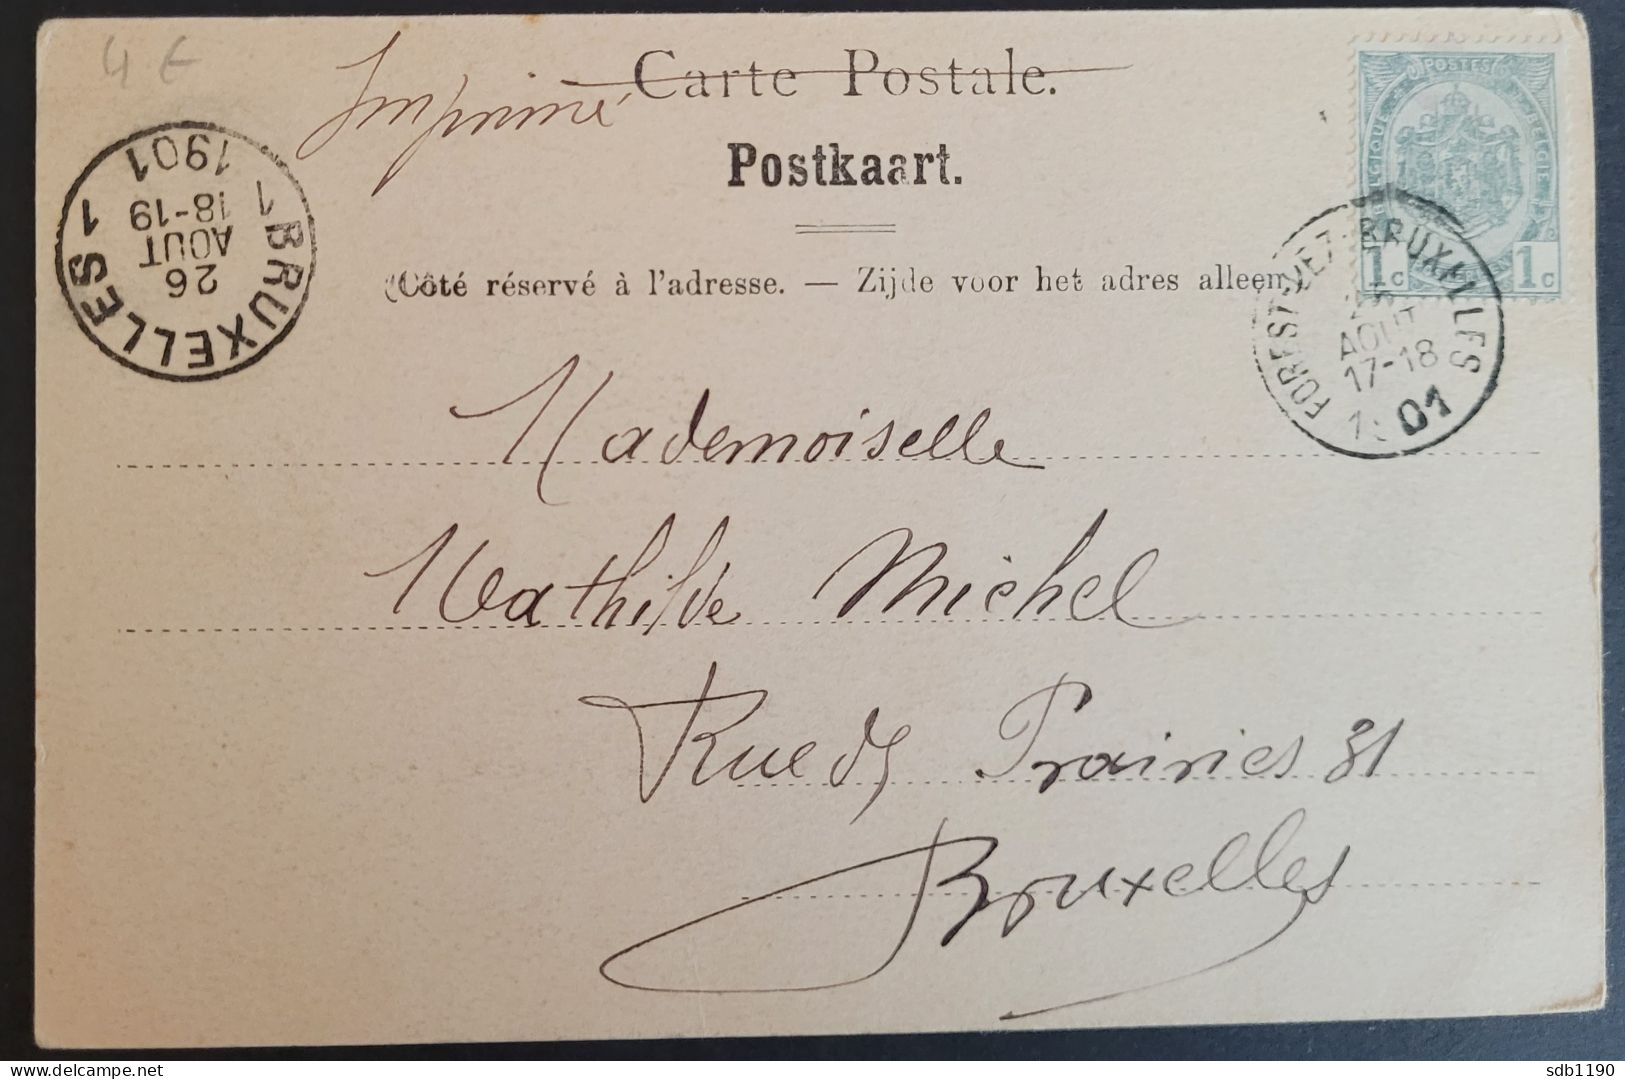 4 €
Imprimé
Carte Postale.
Postkaart.
(Côté réservé à l'adresse. — Zijde voor het adres alleen,
POSTES
BELGIQUE BELGIË
1c 1c
FOREST-LEZ-BRUXELLES
AOUT
17-18
01
1 BRUXELLES 1
26
AOUT
18-19
1901
Mademoiselle
Mathilde Michel
Rue des Prairies 31
Bruxelles
sdb1190